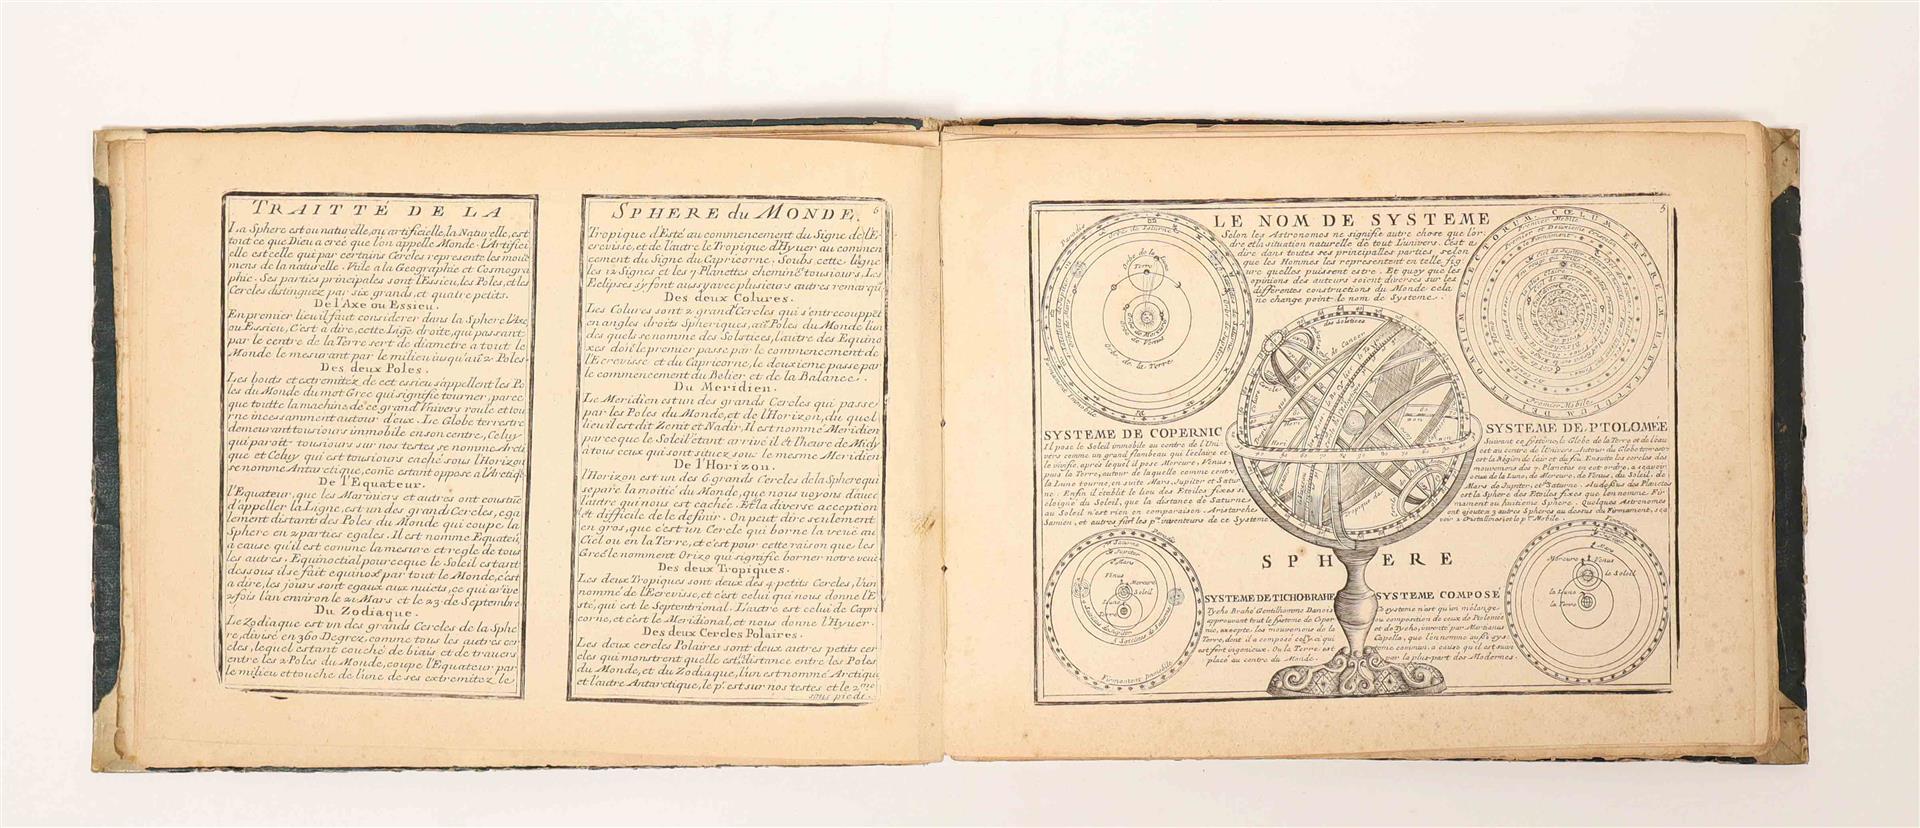 TRAITTÉ DE LA
La Sphere est ou naturelle, ou artificielle, la Naturelle, est
tout ce que Dieu a creé que l'on appelle Monde. l'Artifici
elle est elle qui par certains Cercles represente les mou
mens de la naturelle. Vtile a la Geographie et Cosmogra
phie. Ses parties principales sont l'Essieu, les Poles, et les
Cercles distinguez par six grands, et quatre petits.
De l'Axe ou Essieu.
En premier lieu il faut considerer dans la Sphere l'Axe
ou Essieu, C'est a dire, cette Lige droite, qui passant
par le centre de la Terre sert de diametre a tout le
Monde le mesurant par le milieu iusqu'au 2 Poles.
Des deux Poles.
Les bouts et extremitez de cet essieu s'appellent les Po
les du Monde du mot Grec qui signifie tourner, parce
que toutte la machine de ce grand Vnivers roule et tou
rne incessamment autour d'eux. Le Globe terrestre
demeurant tousiours immobile en son centre, Celuy
qui paroît tousiours sur nos testes se nomme Arcti
que et Celuy qui est tousiours caché sous l'Horizon
se nomme Antarctique, come estant opposé a l'Arctiqe
De l'Equateur.
l'Equateur, que les Mariniers et autres ont coustue
d'appeller la Ligne, est un des grands Cercles, ega
lement distants des Poles du Monde qui coupe la
Sphere en 2 parties egales. Il est nomme Equateu,
a cause qu'il est comme la mesure et regle de tous
les autres, Equinoctial pource que le Soleil estant
dessous il se fait equinox par tout le Monde, c'est
a dire, les jours sont egaux aux nuicts, ce qui arive
2 fois l'an environ le 21 Mars et le 23 de Septembre
Du Zodiaque.
Le Zodiaque est un des grands Cercles de la Sphe
re, divisé en 360 Degrez, comme tous les autres cer
cles, lequel estant couché de biais et de travers
entre les 2 Poles du Monde, coupe l'Equateur par
le milieu et touche de l'une de ses extremitez le
SPHERE du MONDE. 6
Tropique d'Esté au commencement du Signe de l'E
crevisse, et de l'autre le Tropique d'Hyuer au commen
cement du Signe du Capricorne. Soubs cette ligne
les 12 Signes et les 7 Planettes cheminet tousiours. Les
Eclipses s'y font aussy avec plusieurs autres remarqu
Des deux Colures.
Les Colures sont 2 grands Cercles qui s'entrecouppet
en angles droits Spheriques, au Poles du Monde l'un
des quels se nomme des Solstices, l'autre des Equino
xes dont le premier passe par le commencement de
l'Ecrevisse et du Capricorne, le deuxieme passe par
le commencement du Belier et de la Balance.
Du Meridien.
Le Meridien est un des grands Cercles qui passe
par les Poles du Monde, et de l'Horizon, du quel
lieu il est dit Zenit et Nadir. Il est nommé Meridien
parce que le Soleil étant arrivé il ét l'heure de Midy
a tous ceux qui sont situez sous le mesme Meridien
De l'Horizon.
l'Horizon est un des 6 grands Cercles de la Sphere qui
separe la moitié du Monde, que nous uoyons d'auec
l'autre qui nous est cachée. Et la diverse acception
ét difficile de le definir. On peut dire seulement
en gros, que c'est un Cercle qui borne la veüe au
Ciel ou en la Terre, et c'est pour cette raison que les
Grecs le nomment Orizo qui signifie borner notre veüe
Des deux Tropiques.
Les deux Tropiques sont deux des 4 petits Cercles, l'un
nommé de l'Ecrevisse, et c'est celui qui nous donne l'E
sté, qui est le Septentrional. L'autre est celui de Capri
corne, et c'est le Meridional, et nous donne l'Hyuer.
Des deux Cercles Polaires.
Les deux cercles Polaires sont deux autres petits cer
cles qui monstrent quelle est la distance entre les Poles
du Monde, et du Zodiaque, l'un est nommé Arctique
et l'autre Antarctique, le pr. est sur nos testes et le 2me
sous pieds.
5
LE NOM DE SYSTEME
Selon les Astronomes ne signifie autre chose que l'or
dre et la situation naturelle de tout l'univers. C'est a
dire dans toutes ses principalles parties selon
que les Hommes les representent en telle fig
ure quelles puissent estre. Et quoy que les
opinions des auteurs soient diverses sur les
differentes constructions du Monde cela
ne change point le nom de Systeme.
Orbe de Saturne
Orbe de la Lune
Terre
Orbe de Mercure
Orbe de Venus
Orbe de la Terre
CŒLUM EMPIREUM HABITACULUM DEI ET OMNIUM ELECTORUM
Premier Mobile
Premier et Deuxieme Cristallin
le Firmament
Premier Mobile
des Solstices
SYSTEME DE COPERNIC
Il pose le Soleil immobile au centre de l'Uni-
vers comme un grand flambeau qui l'eclaire et
le vivifie, aprés lequel il pose Mercure, Venus,
puis la Terre, autour de laquelle comme centre
la Lune tourne, en suite Mars Jupiter et Satur
ne. Enfin il établit le lieu des Etoiles fixes si
eloigné du Soleil, que la distance de Saturne
au Soleil n'est rien en comparaison. Aristarche
Samien, et autres fürt les prs. inventeurs de ce Systeme
SYSTEME DE PTOLOMÉE
Suivant ce systéme le Globe de la Terre et de l'eau
est au centre de l'Univers. Autour du Globe terrestre
est la Région de l'air et du feu. Ensuite les cercles des
mouvemens des 7 Planetes en cet ordre, a sçavoir
ceux de la Lune, de Mercure, de Venus, du Soleil, de
Mars de Jupiter, et de Saturne. Au dessus des Planetes
est la Sphere des Etoiles fixes que l'on nomme Fir
mament ou huitieme Sphere. Quelques Astronomes
ont ajouté 3 autres Spheres au dessus du Firmament, sça
voir 2 Cristallins et le pr. Mobile.
SPHERE
Saturne
Jupiter
Mars
Venus
Mercure
Soleil
Lune
Terre
Firmament
SYSTEME DE TICHOBRAHE
Tycho Brahé Gentilhomme Danois
approuvant tout le systeme de Coper
nic, excepte les mouvemens de la
Terre, dont il a composé celuy ci qui
est fort ingenieux. Ou la Terre est
placé au centre du Monde.
SYSTEME COMPOSÉ
Ce systeme n'est qu'un mélange
ou composition de ceux de Ptolomée
et de Tycho, inventé par Martianus
Capella, que l'on nomme aussi sys
teme commun, a cause qu'il est suivi
par la plus-part des Modernes.
Firmament
Mars
Mercure
Venus
le Soleil
la Lune
la Terre